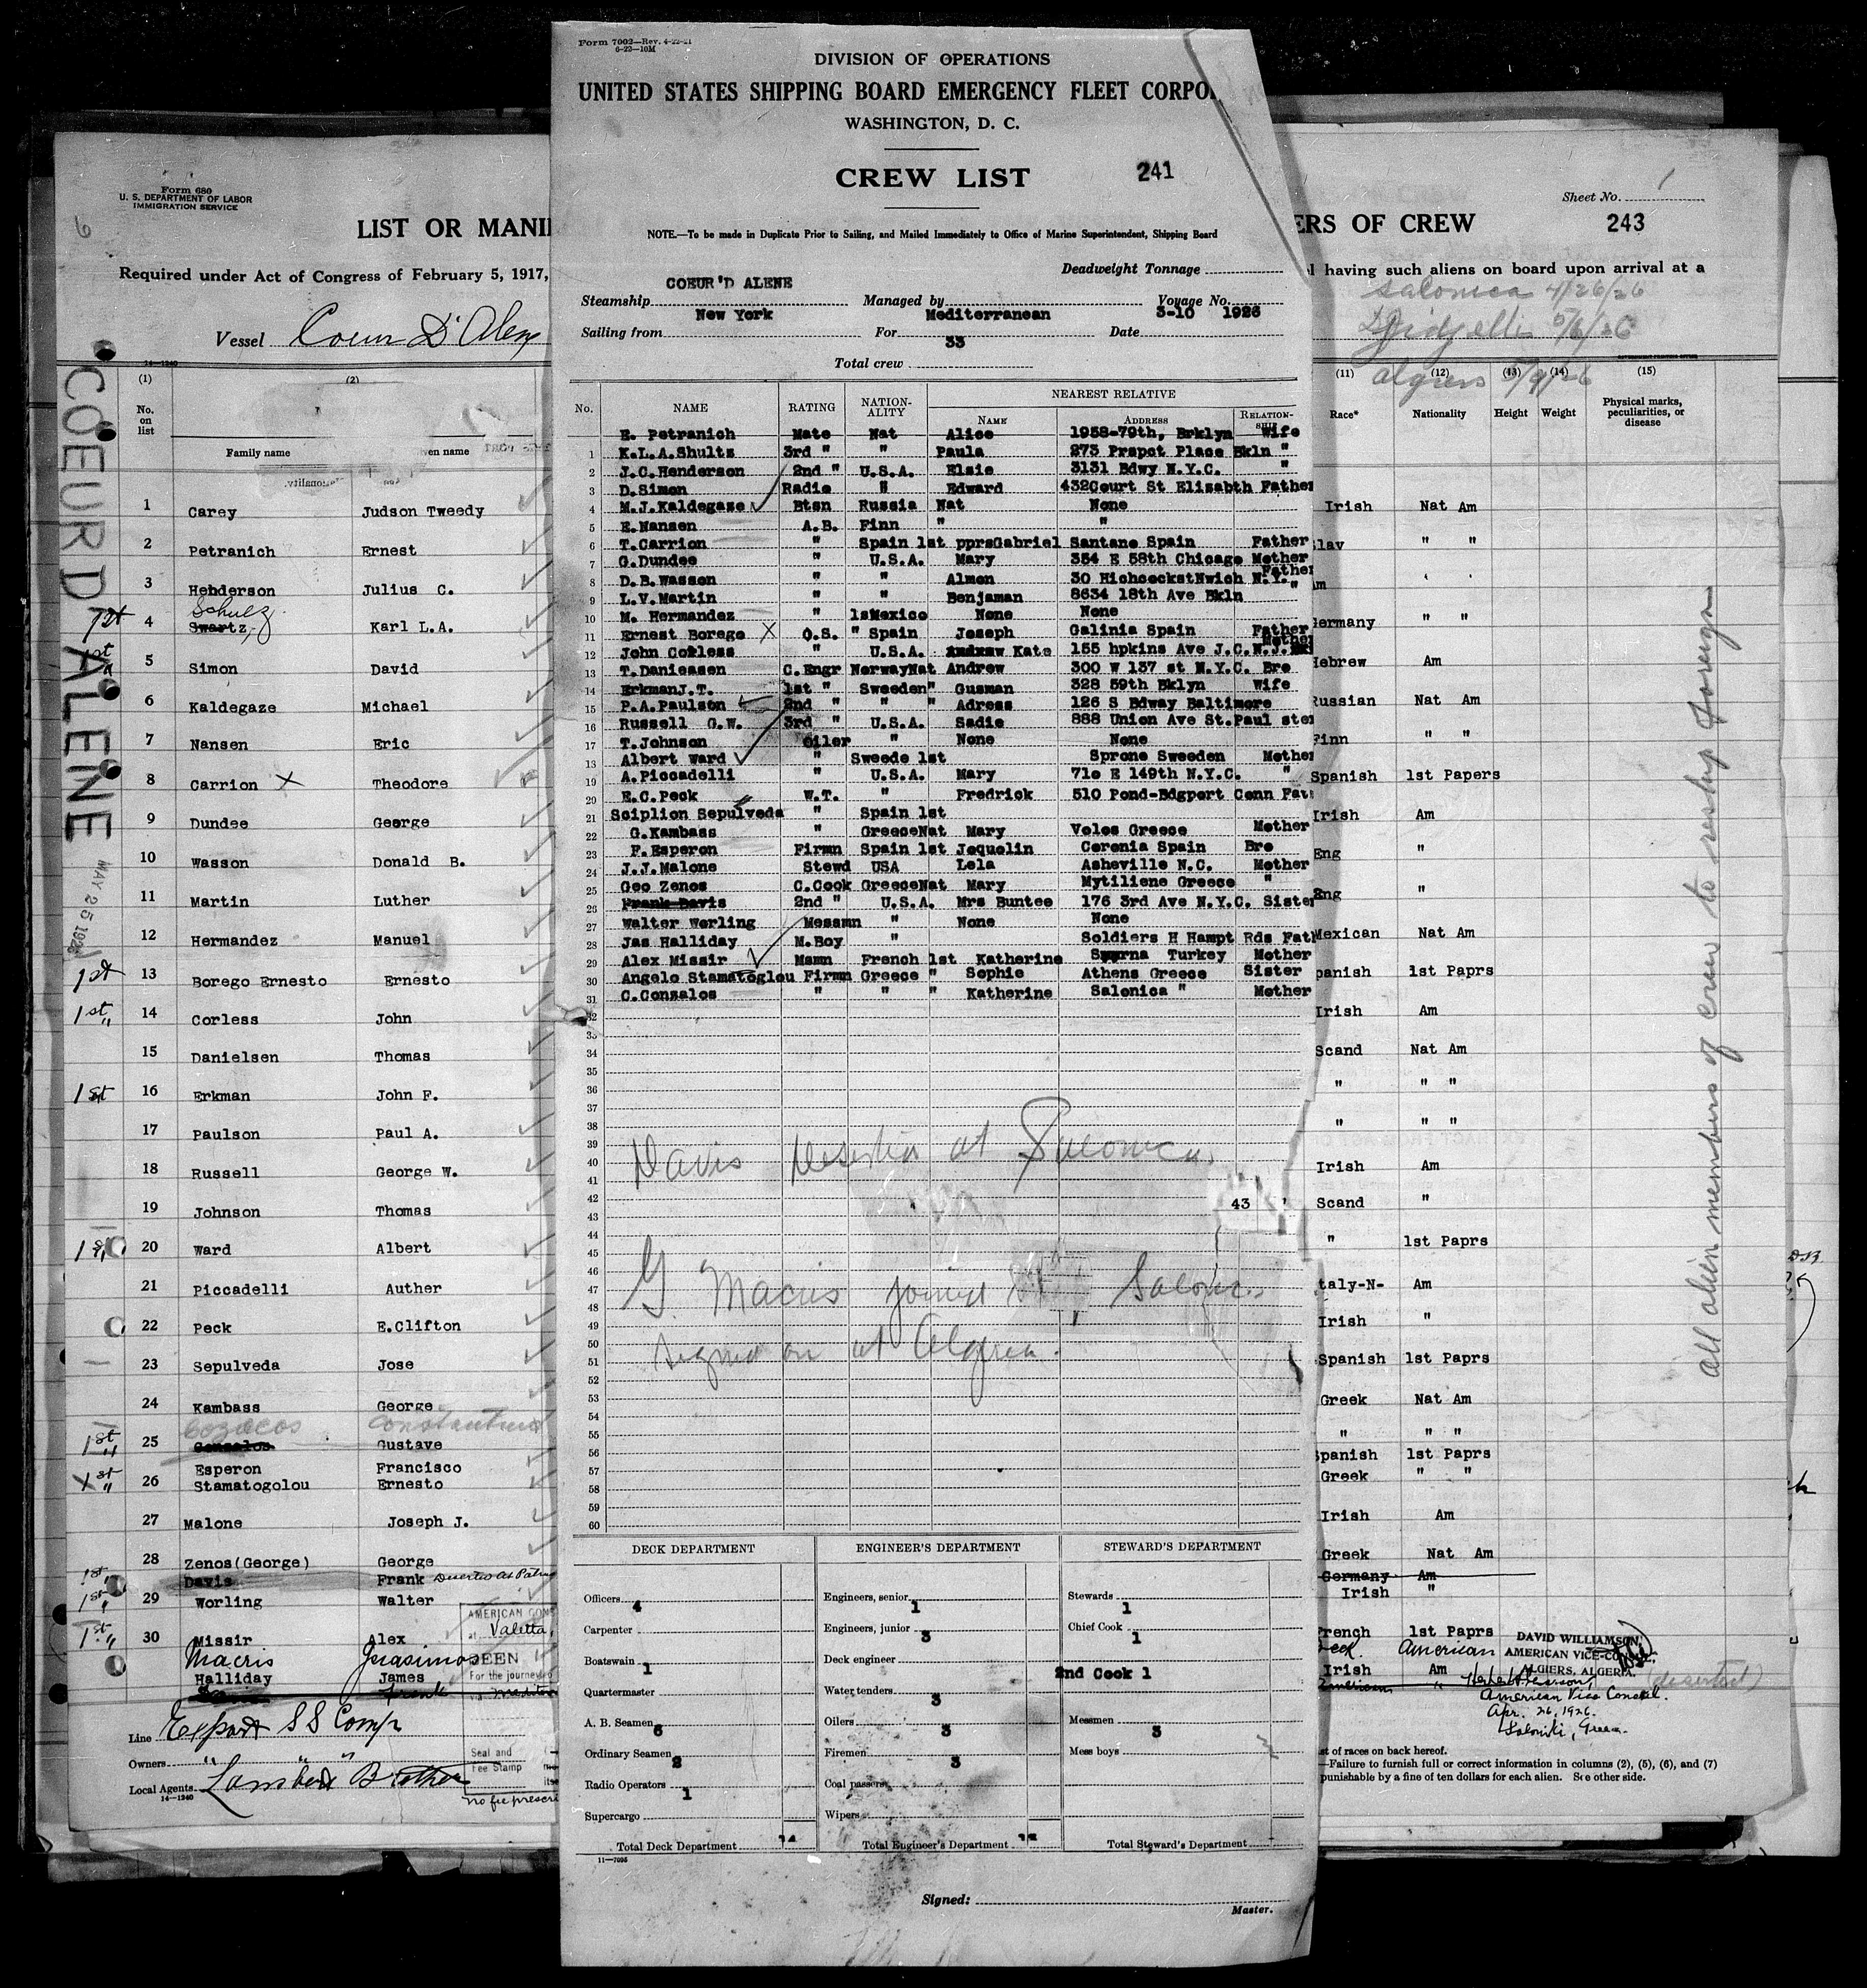 Form 7002—Rev. 4-22-21
6-22-10M
DIVISION OF OPERATIONS
UNITED STATES SHIPPING BOARD EMERGENCY FLEET CORPO
WASHINGTON, D. C.
CREW LIST 241
NOTE.—To be made in Duplicate Prior to Sailing, and Mailed Immediately to Office of Marine Superintendent, Shipping Board
Deadweight Tonnage
COEUR'D ALENE
Steamship Managed by Voyage No.
New York Mediterranean 3-10 1926
Sailing from For Date
33
Total crew
No. NAME RATING NATION-ALITY NEAREST RELATIVE
NAME ADDRESS RELATION-SHIP
E. Petranich Mate Nat Alice 1958-79th, Brklyn Wife
1 K.L.A.Shultz 3rd " " Paula 273 Prspct Place Bkln "
2 J.C.Henderson 2nd " U.S.A. Elsie 3131 Bdwy N.Y.C. "
3 D.Simon Radio " Edward 432Court St Elizabth Father
4 M.J.Kaldegaze Btsn Russia Nat None
5 E.Nansen A.B. Finn " "
6 T.Carrion " Spain 1st pprsGabriel Santane Spain Father
7 G.Dundee " U.S.A. Mary 354 E 58th Chicago Mother
8 D.B.Wasson " " Almon 30 HichcockstNwich N.Y. Father
9 L.V.Martin " Benjaman 8634 18th Ave Bkln "
10 M. Hermandez " 1sMexico None None
11 Ernest Borego X O.S. " Spain Joseph Galinia Spain Father
12 John Corless " U.S.A. Kate 155 hpkins Ave J.C.N.J. Mother
13 T.Danieasen C.Engr NorwayNat Andrew 300 W 137 st N.Y.C. Bro
14 ErkmanJ.T. 1st " Sweeden" Gusman 328 59th Bklyn Wife
15 P.A.Paulson 2nd " " " Adress 126 S Bdway Baltimore
16 Russell G.W. 3rd " U.S.A. Sadie 888 Union Ave St.Paul ste
17 T.Johnson Oiler " None None
13 Albert Ward " Swede 1st Sprone Sweeden Mother
19 A.Piccadelli " U.S.A. Mary 710 E 149th N.Y.C. "
20 E.C.Peck W.T. " Fredrick 510 Pond-Bdgport Conn Fat
21 Sciplion Sepulveda " Spain 1st
22 G.Kambass " GreeceNat Mary Volos Greece Mother
23 F.Esperon Firmn Spain 1st Jequelin Coronia Spain Bro
24 J.J.Malone Stewd USA Lela Asheville N.C. Mother
25 Geo Zenos C.Cook GreeceNat Mary Mytiliene Greece "
26 Frank Davis 2nd " U.S.A. Mrs Buntee 176 3rd Ave N.Y.C. Sister
27 Walter Worling Messmn " None None
28 Jas Halliday M.Boy " Soldiers H Hampt Rds Fat
29 Alex Missir Msmn French 1st Katherine Smyrna Turkey Mother
30 Angelo Stamatoglou Firmn Greece " Sophie Athens Greece Sister
31 C.Conzalos " " " Katherine Salonica " Mother
32
33
34
35
36
37
38
39
40 Davis Deserted at Salonica.
41
42
43
43
44
45
46
47 G Macris joined Salonica
48
49
50
51 signed on at Algiers.
52
53
54
55
56
57
58
59
60
DECK DEPARTMENT ENGINEER'S DEPARTMENT STEWARD'S DEPARTMENT
Officers 4 Engineers, senior 1 Stewards 1
Carpenter Engineers, junior 3 Chief Cook 1
Boatswain 1 Deck engineer 2nd Cook 1
Quartermaster Water tenders 3
A. B. Seamen 6 Oilers 3 Messmen 3
Ordinary Seamen 2 Firemen 3 Mess boys
Radio Operators 1 Coal passers
Supercargo Wipers
Total Deck Department 14 Total Engineer's Department Total Steward's Department
11—7095
Signed:
Master.
Form 680
U. S. DEPARTMENT OF LABOR
IMMIGRATION SERVICE
LIST OR MANI
Required under Act of Congress of February 5, 1917,
Vessel Coeur D'Alene
14—1240
COEUR D ALENE
MAY 25 1926
(1) (2)
No. on list
Family name ven name
1 Carey Judson Tweedy
2 Petranich Ernest
3 Henderson Julius C.
Schulz
1st 4 Swartz, Karl L.A.
1st 5 Simon David
6 Kaldegaze Michael
7 Nansen Eric
8 Carrion X Theodore
9 Dundee George
10 Wasson Donald B.
11 Martin Luther
12 Hermandez Manuel
1st 13 Borego Ernesto Ernesto
1st " 14 Corless John
15 Danielsen Thomas
1st 16 Erkman John F.
17 Paulson Paul A.
18 Russell George W.
19 Johnson Thomas
1st 20 Ward Albert
21 Piccadelli Auther
22 Peck E.Clifton
23 Sepulveda Jose
24 Kambass George
Cozacos Constantino
1st " 25 Gonzalos Gustave
Esperon Francisco
1st " 26 Stamatogolou Ernesto
27 Malone Joseph J.
28 Zenos(George) George
1st " Davis Frank
1st " 29 Worling Walter
1st " 30 Missir Alex
Macris Gerasimos
Halliday James
Frank
AMERICAN CONS
at Valetta,
SEEN
For the journey to
Seal and Fee Stamp
No fee prescri
Line Export SS Comp
Owners " " "
Local Agents Lambert Brother
14—1240
ERS OF CREW
Sheet No. 1
243
l having such aliens on board upon arrival at a
Salonica 4/26/26
Djidjelli 5/6/26
Algiers 5/9/26
(11) (12) (13) (14) (15)
Race* Nationality Height Weight Physical marks, peculiarities, or disease
Irish Nat Am
lav " "
m ' '
ermany " "
Hebrew Am
Russian Nat Am
Finn " "
Spanish 1st Papers
Irish Am
Eng "
Eng "
Mexican Nat Am
panish 1st Paprs
Irish Am
Scand Nat Am
" " "
" " "
Irish Am
Scand "
" 1st Paprs
taly-N- Am
Irish "
Spanish 1st Paprs
Greek Nat Am
" " "
Spanish 1st Paprs
Greek " "
Irish Am
Greek Nat Am
Germany Am
Irish "
French 1st Paprs
eek. American
Irish Am
American "
DAVID WILLIAMSON,
AMERICAN VICE-CONSUL
ALGIERS, ALGERIA.
(deserted)
American Vice Consul.
Apr. 26, 1926.
Saloniki, Greece.
All alien members of crew to reship foreign
st of races on back hereof.
—Failure to furnish full or correct information in columns (2), (5), (6), and (7)
punishable by a fine of ten dollars for each alien. See other side.